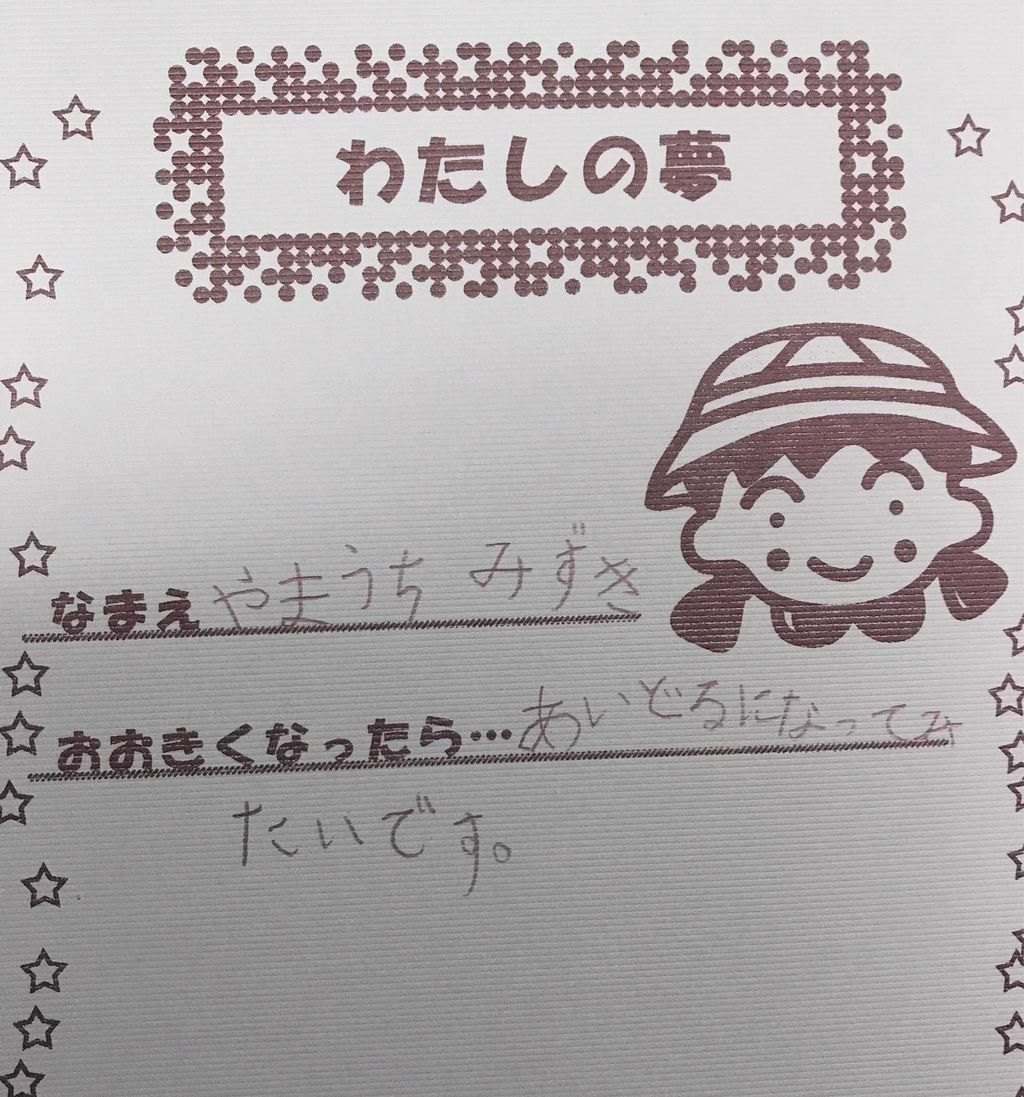 わたしの夢
なまえ やまうち みずき
おおきくなったら…あいどるになってみ
たいです。